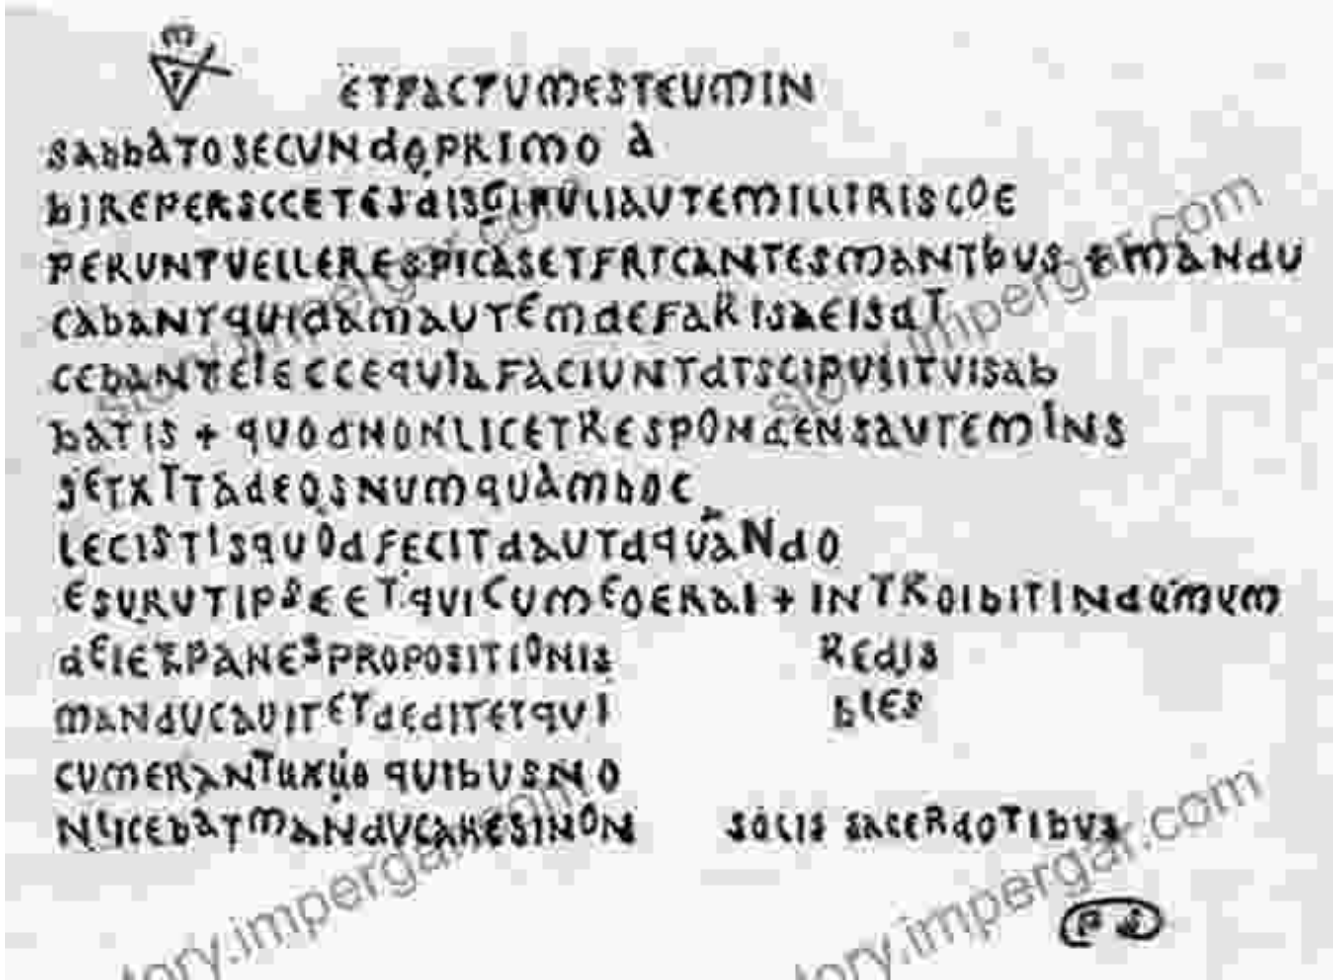 ETFACTUMESTEUMIN
SABBATOSECUNDOPRIMO À
BIREPERSCCETESDISCIPULIAUTEMILLITRISCOE
PERUNTVELLERESPICASETFRICANTESMANIBUS & MANDU
CABANTQUIDAMAUTEMDEFARISAEISDI
CEBANTEIECCEQUIAFACIUNTDISCIPULITVISAB
BATIS + QUODNONLICETRESPONDENSAUTEMINS
SETXITADEOSNUMQUAMBOC
LECISTISQUODFECITDAUTDQUANDO
ESURUTIPSEETQUICUMEOERAI + INTROIBITINDOMUM
DEIETPANESPROPOSITIONIS REDIS
MANDUCAUITETDEDITETQUI BLES
CUMERANTUXUO QUIBUSNO
NLICEBATMANDUCARESINON SOLIS SACERDOTIBUS
PS
story.impergar.com
story.impergar.com
story.impergar.com
story.impergar.com